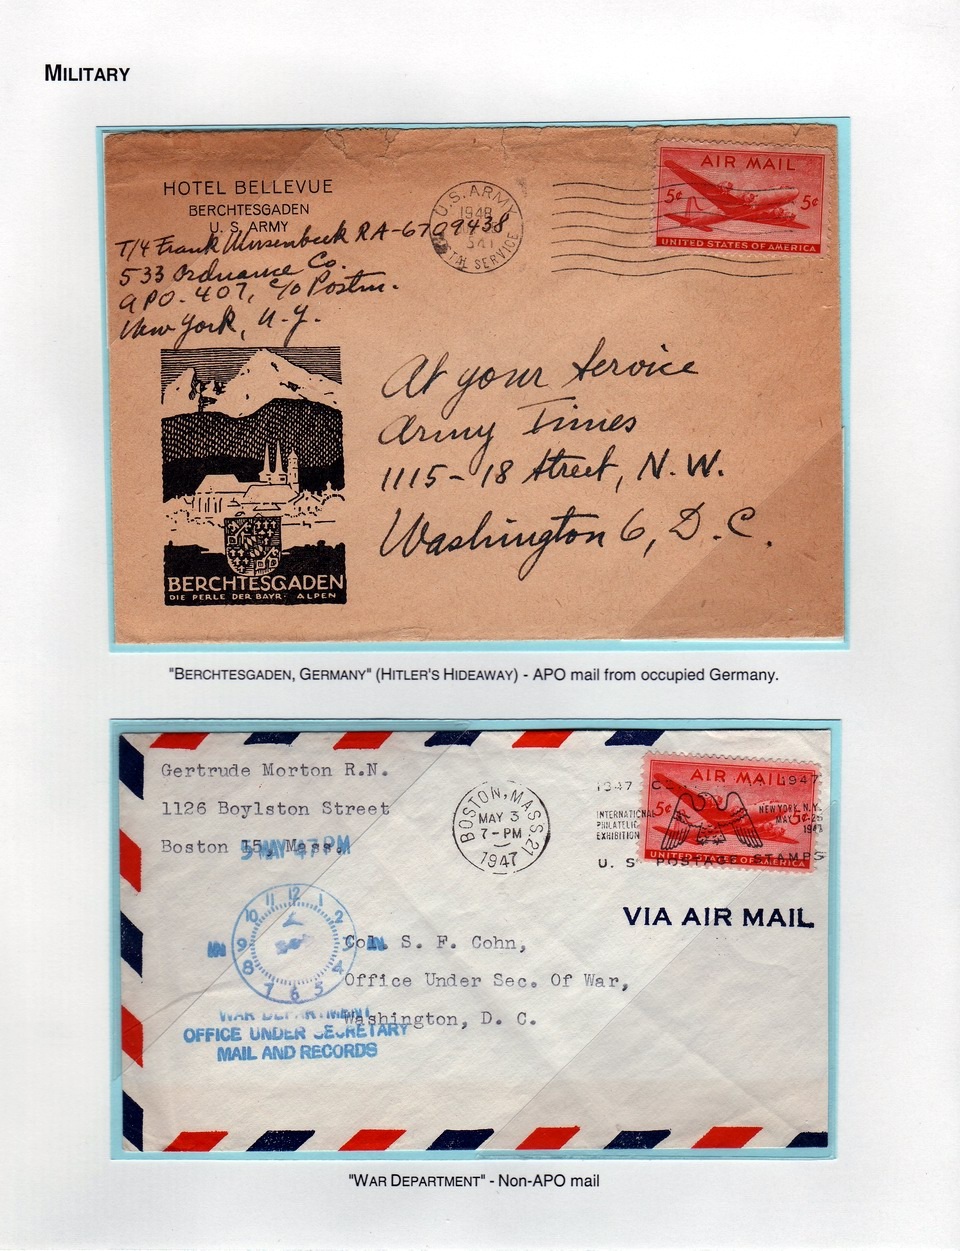 MILITARY
HOTEL BELLEVUE
BERCHTESGADEN
U. S. ARMY
T/4 Frank RA-6709438
533 Ordnance Co.
APO-407, c/o Postm.
New York, N.Y.
U.S. ARMY
1948
341
POSTAL SERVICE
AIR MAIL
5¢ 5¢
UNITED STATES OF AMERICA
At your Service
Army Times
1115-18 Street, N.W.
Washington 6, D.C.
BERCHTESGADEN
DIE PERLE DER BAYR. ALPEN
"BERCHTESGADEN, GERMANY" (HITLER'S HIDEAWAY) - APO mail from occupied Germany.
Gertrude Morton R.N.
1126 Boylston Street
Boston 15, Mass.
MAY 47 PM
BOSTON, MASS. 21
MAY 3
7-PM
1947
1947 C 1947
INTERNATIONAL
PHILATELIC
EXHIBITION
NEW YORK, N.Y.
MAY 1947
U. S. POSTAGE STAMPS
AIR MAIL
5¢ 5¢
UNITED STATES OF AMERICA
VIA AIR MAIL
12 1 2 3 4 5 6 7 8 9 10 11
IN IN
Col. S. F. Cohn,
Office Under Sec. Of War,
Washington, D. C.
WAR DEPARTMENT
OFFICE UNDER SECRETARY
MAIL AND RECORDS
"WAR DEPARTMENT" - Non-APO mail